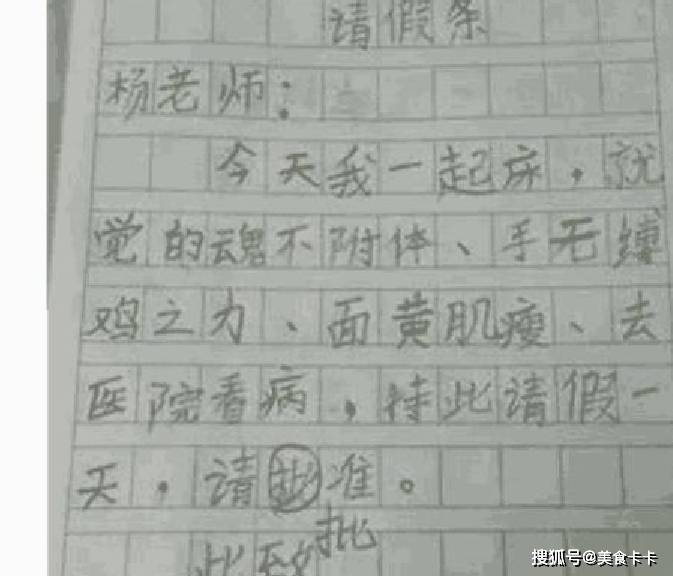 请假条
杨老师：
今天我一起床，就
觉的魂不附体、手无缚
鸡之力、面黄肌瘦、去
医院看病，持此请假一
天，请批准。
批
此致
搜狐号@美食卡卡